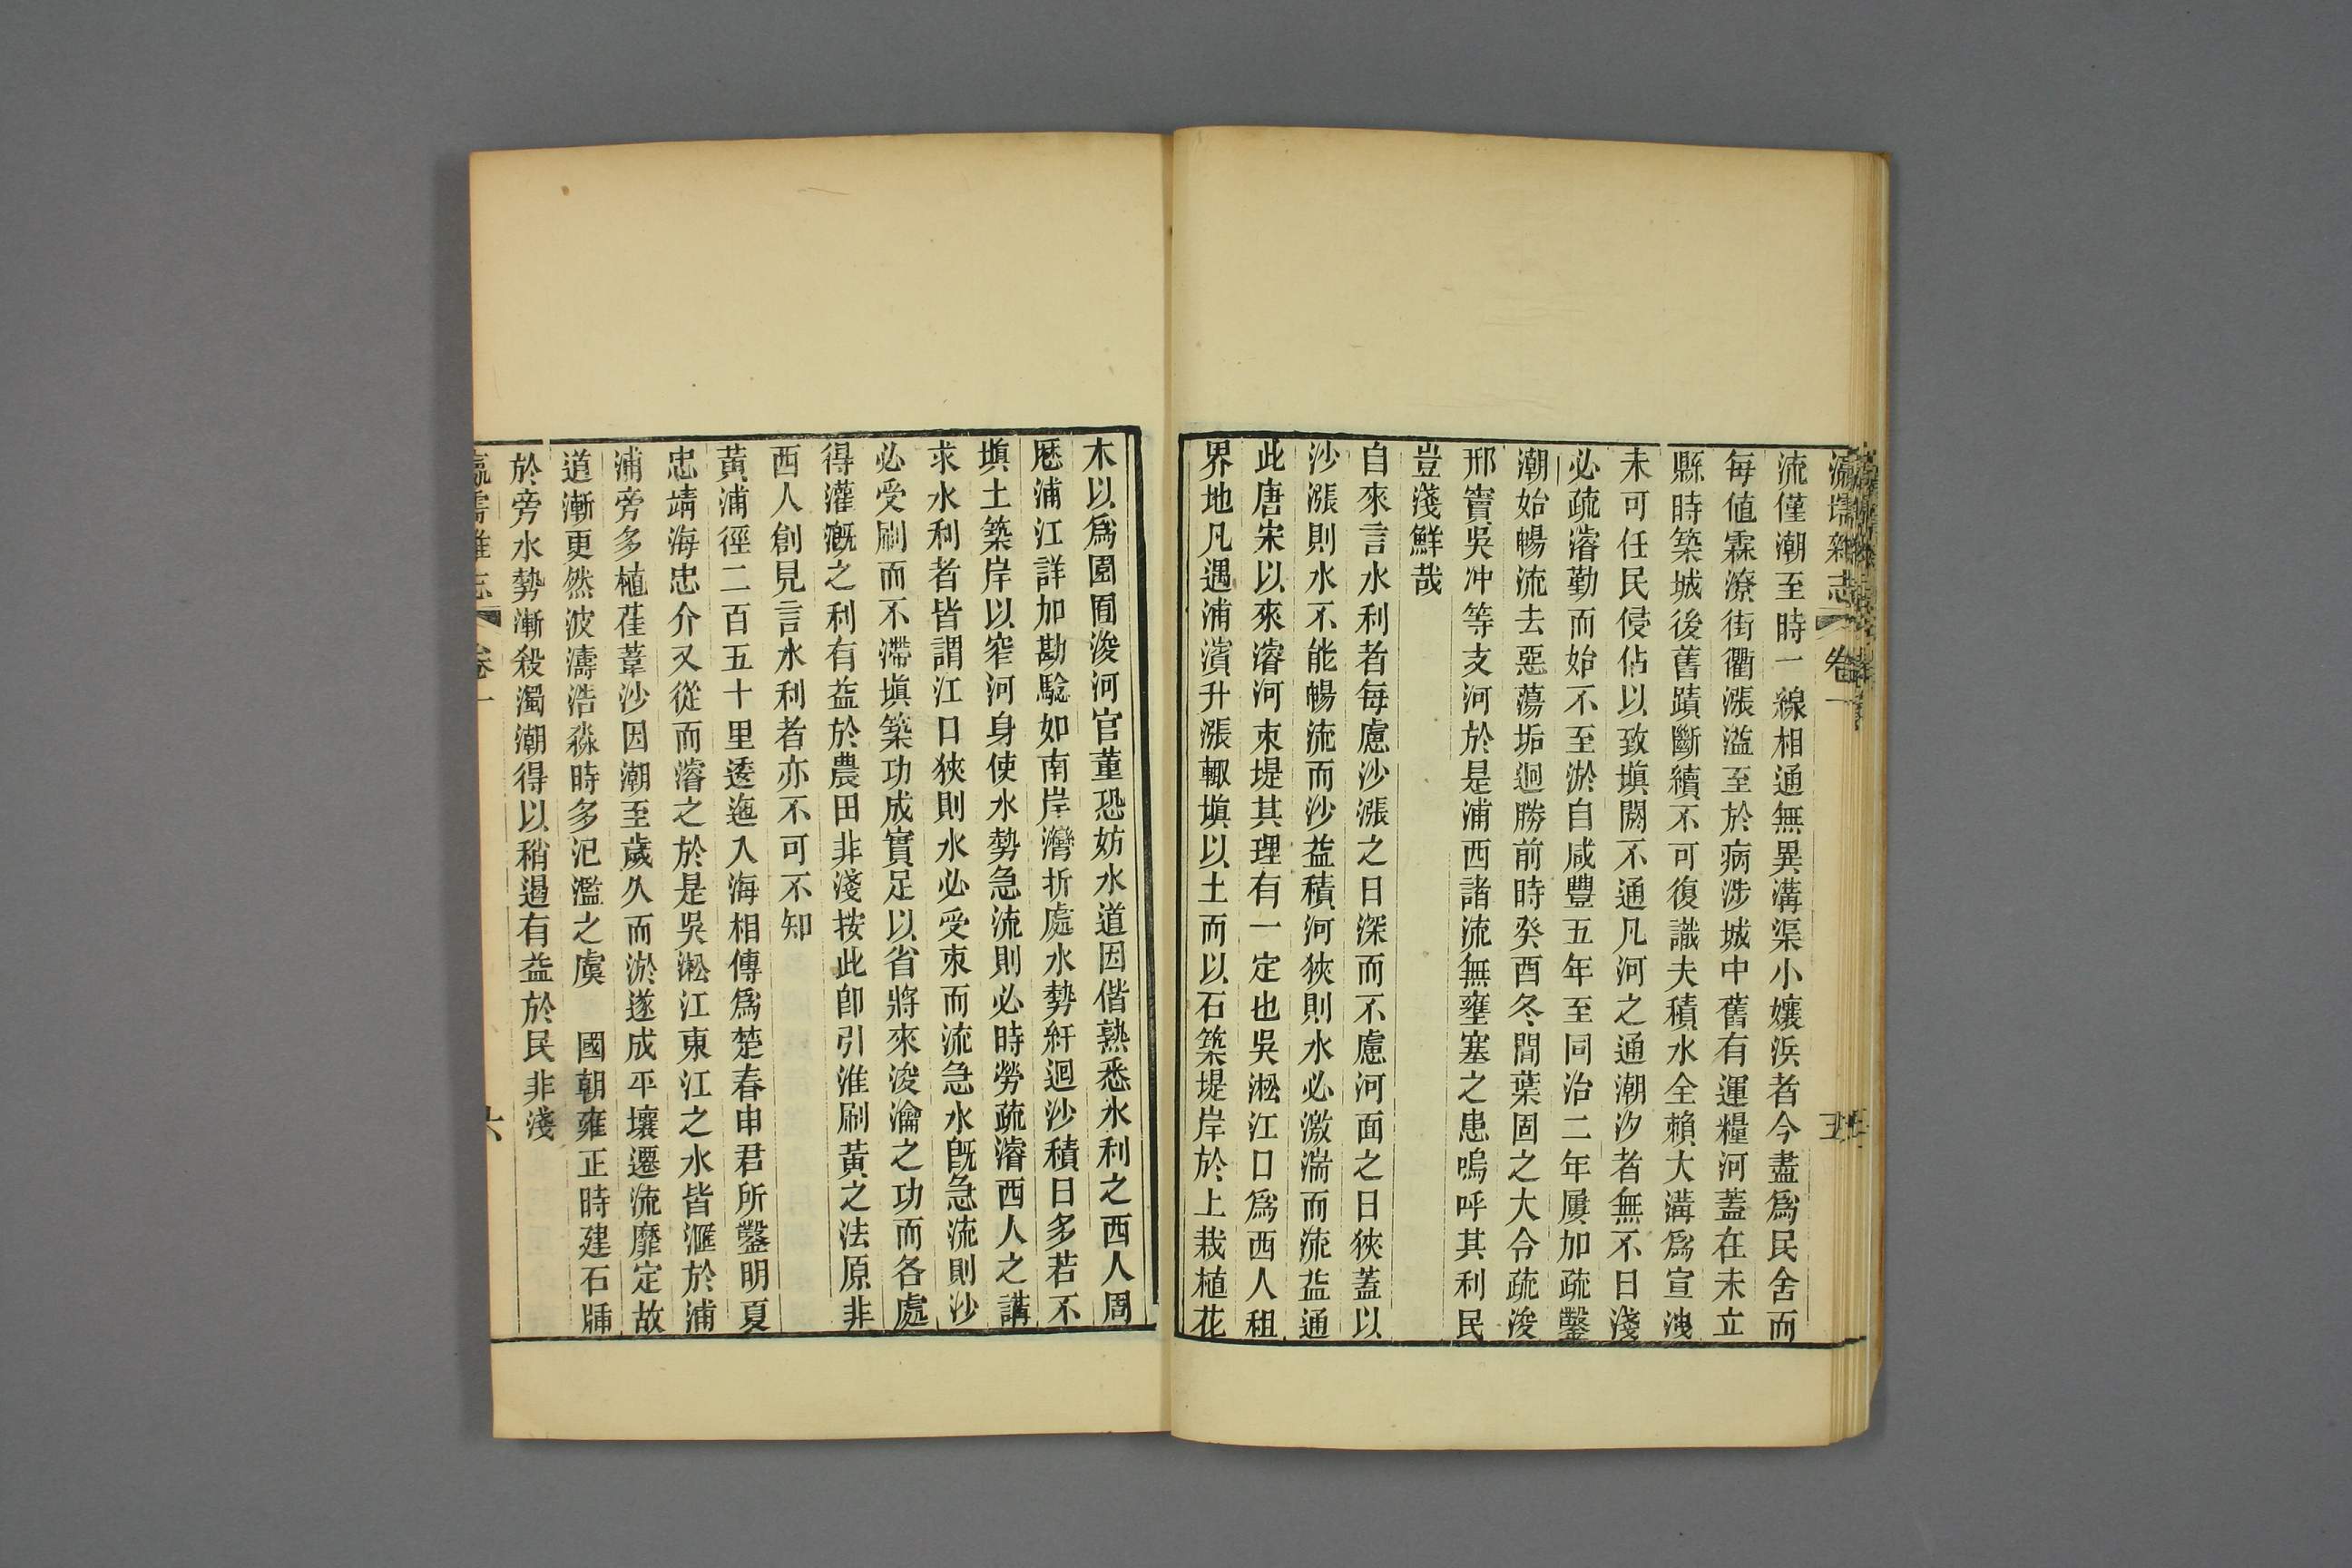 瀛壖雜志 卷一 五
流僅潮至時一線相通無異溝渠小孃浜者今盡爲民舍而
每値霖潦街衢漲溢至於病涉城中舊有運糧河蓋在未立
縣時築城後舊蹟斷續不可復識夫積水全賴大溝爲宣洩
未可任民侵佔以致塡閼不通凡河之通潮汐者無不日淺
必疏濬勤而始不至淤自咸豐五年至同治二年屢加疏鑿
潮始暢流去惡蕩垢迥勝前時癸酉冬間葉固之大令疏浚
邢竇吳冲等支河於是浦西諸流無壅塞之患嗚呼其利民
豈淺鮮哉
自來言水利者每慮沙漲之日深而不慮河面之日狹蓋以
沙漲則水不能暢流而沙益積河狹則水必激湍而流益通
此唐宋以來濬河束堤其理有一定也吳淞江口爲西人租
界地凡遇浦濱升漲輙塡以土而以石築堤岸於上栽植花
木以爲園囿浚河官董恐妨水道因偕熟悉水利之西人周
厯浦江詳加勘騐如南岸灣折處水勢紆迴沙積日多若不
塡土築岸以窄河身使水勢急流則必時勞疏濬西人之講
求水利者皆謂江口狹則水必受束而流急水旣急流則沙
必受刷而不滯塡築功成實足以省將來浚瀹之功而各處
得灌溉之利有益於農田非淺按此卽引淮刷黃之法原非
西人創見言水利者亦不可不知
黃浦徑二百五十里逶迤入海相傳爲楚春申君所鑿明夏
忠靖海忠介又從而濬之於是吳淞江東江之水皆滙於浦
浦旁多植萑葦沙因潮至歲久而淤遂成平壤遷流靡定故
道漸更然波濤浩淼時多氾濫之虞 國朝雍正時建石牐
於旁水勢漸殺濁潮得以稍遏有益於民非淺
瀛壖雜志 卷一 六